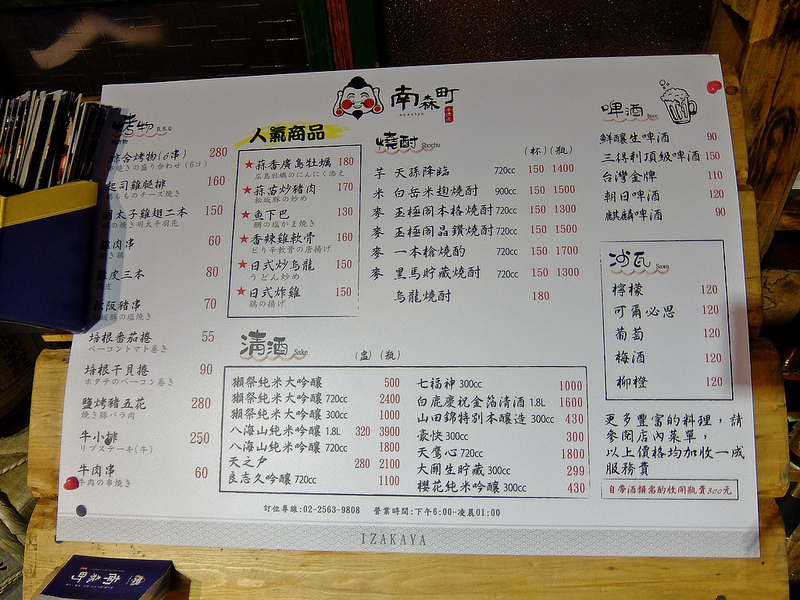 南森町
ROASTER
烤物 B.B.Q
綜合烤物(6串) 280
焼きの盛り合わせ(6コ)
起司雞腿排 160
もものチーズ焼き
明太子雞翅二本 150
の焼き明太手羽先
雞肉串 60
雞皮三本 80
松阪豬串 70
豚の塩焼き
培根番茄捲 55
ベーコントマト巻き
培根干貝捲 90
ホタテのベーコン巻き
鹽烤豬五花 280
焼き豚バラ肉
牛小排 250
リブステーキ(牛)
牛肉串 60
牛肉の串焼き
人氣商品
★蒜香廣島牡蠣 180
広島牡蠣のにんにく添え
★蒜苗炒豬肉 170
松坂豚の炒め
★魚下巴 130
鯛の塩かま焼き
★香辣雞軟骨 160
ピリ辛軟骨の唐揚げ
★日式炒烏龍 150
うどん炒め
★日式炸雞 150
鶏の揚げ
燒酎 Shochu
(杯)(瓶)
芋 天孫降臨 720cc 150 1400
米 白岳米麹燒酎 900cc 150 1500
麥 玉極閣本格燒酎 720cc 150 1300
麥 玉極閣晶鑽燒酎 720cc 150 1500
麥 一本槍燒酌 720cc 150 1700
麥 黑馬貯藏燒酎 720cc 150 1300
烏龍燒酎 180
啤酒 Beer
鮮釀生啤酒 90
三得利頂級啤酒 150
台灣金牌 110
朝日啤酒 120
麒麟啤酒 90
沙瓦 Sawa
檸檬 120
可爾必思 120
葡萄 120
梅酒 120
柳橙 120
清酒 Sake
(盅)(瓶)
獺祭純米大吟釀 500
獺祭純米大吟釀 720cc 2400
獺祭純米大吟釀 300cc 1000
八海山純米吟釀 1.8L 320 3900
八海山純米吟釀 720cc 1800
天之戶 280 2100
良志久吟釀 720cc 1100
七福神 300cc 1000
白鹿慶祝金箔清酒 1.8L 1600
山田錦特別本釀造 300cc 430
豪快 300cc 300
天鷹心 720cc 1800
大關生貯藏 300cc 299
櫻花純米吟釀 300cc 430
更多豐富的料理，請
參閱店內菜單，
以上價格均加收一成
服務費
自帶酒類需酌收開瓶費300元
訂位專線:02-2563-9808 營業時間:下午6:00-凌晨01:00
IZAKAYA